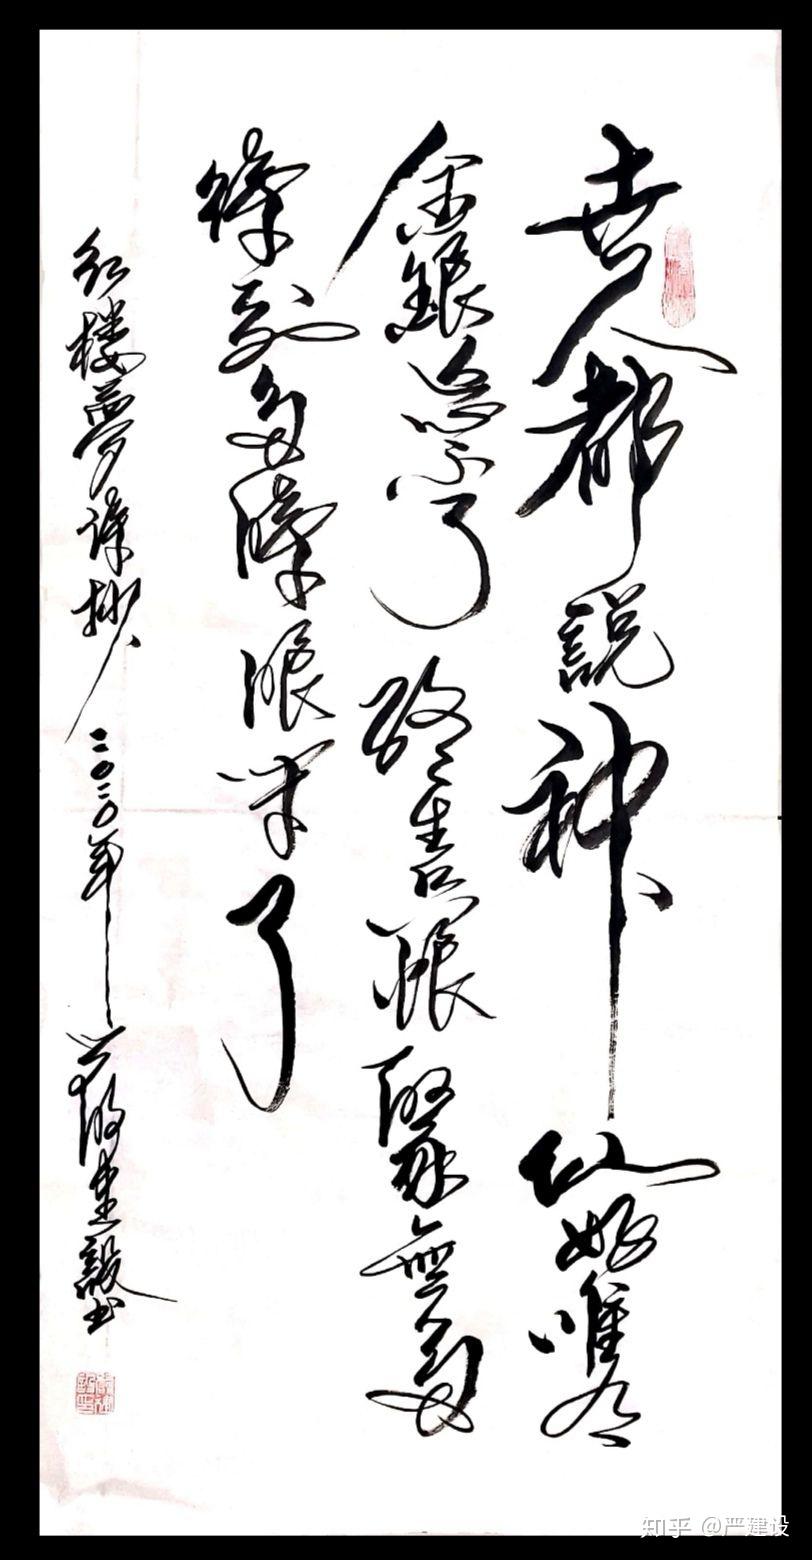 世人都說神仙好唯有
金銀忘不了終生只恨聚無多
待到多時眼閉了
红楼夢诗抄 二〇二〇年 嚴建設书
知乎 @严建设